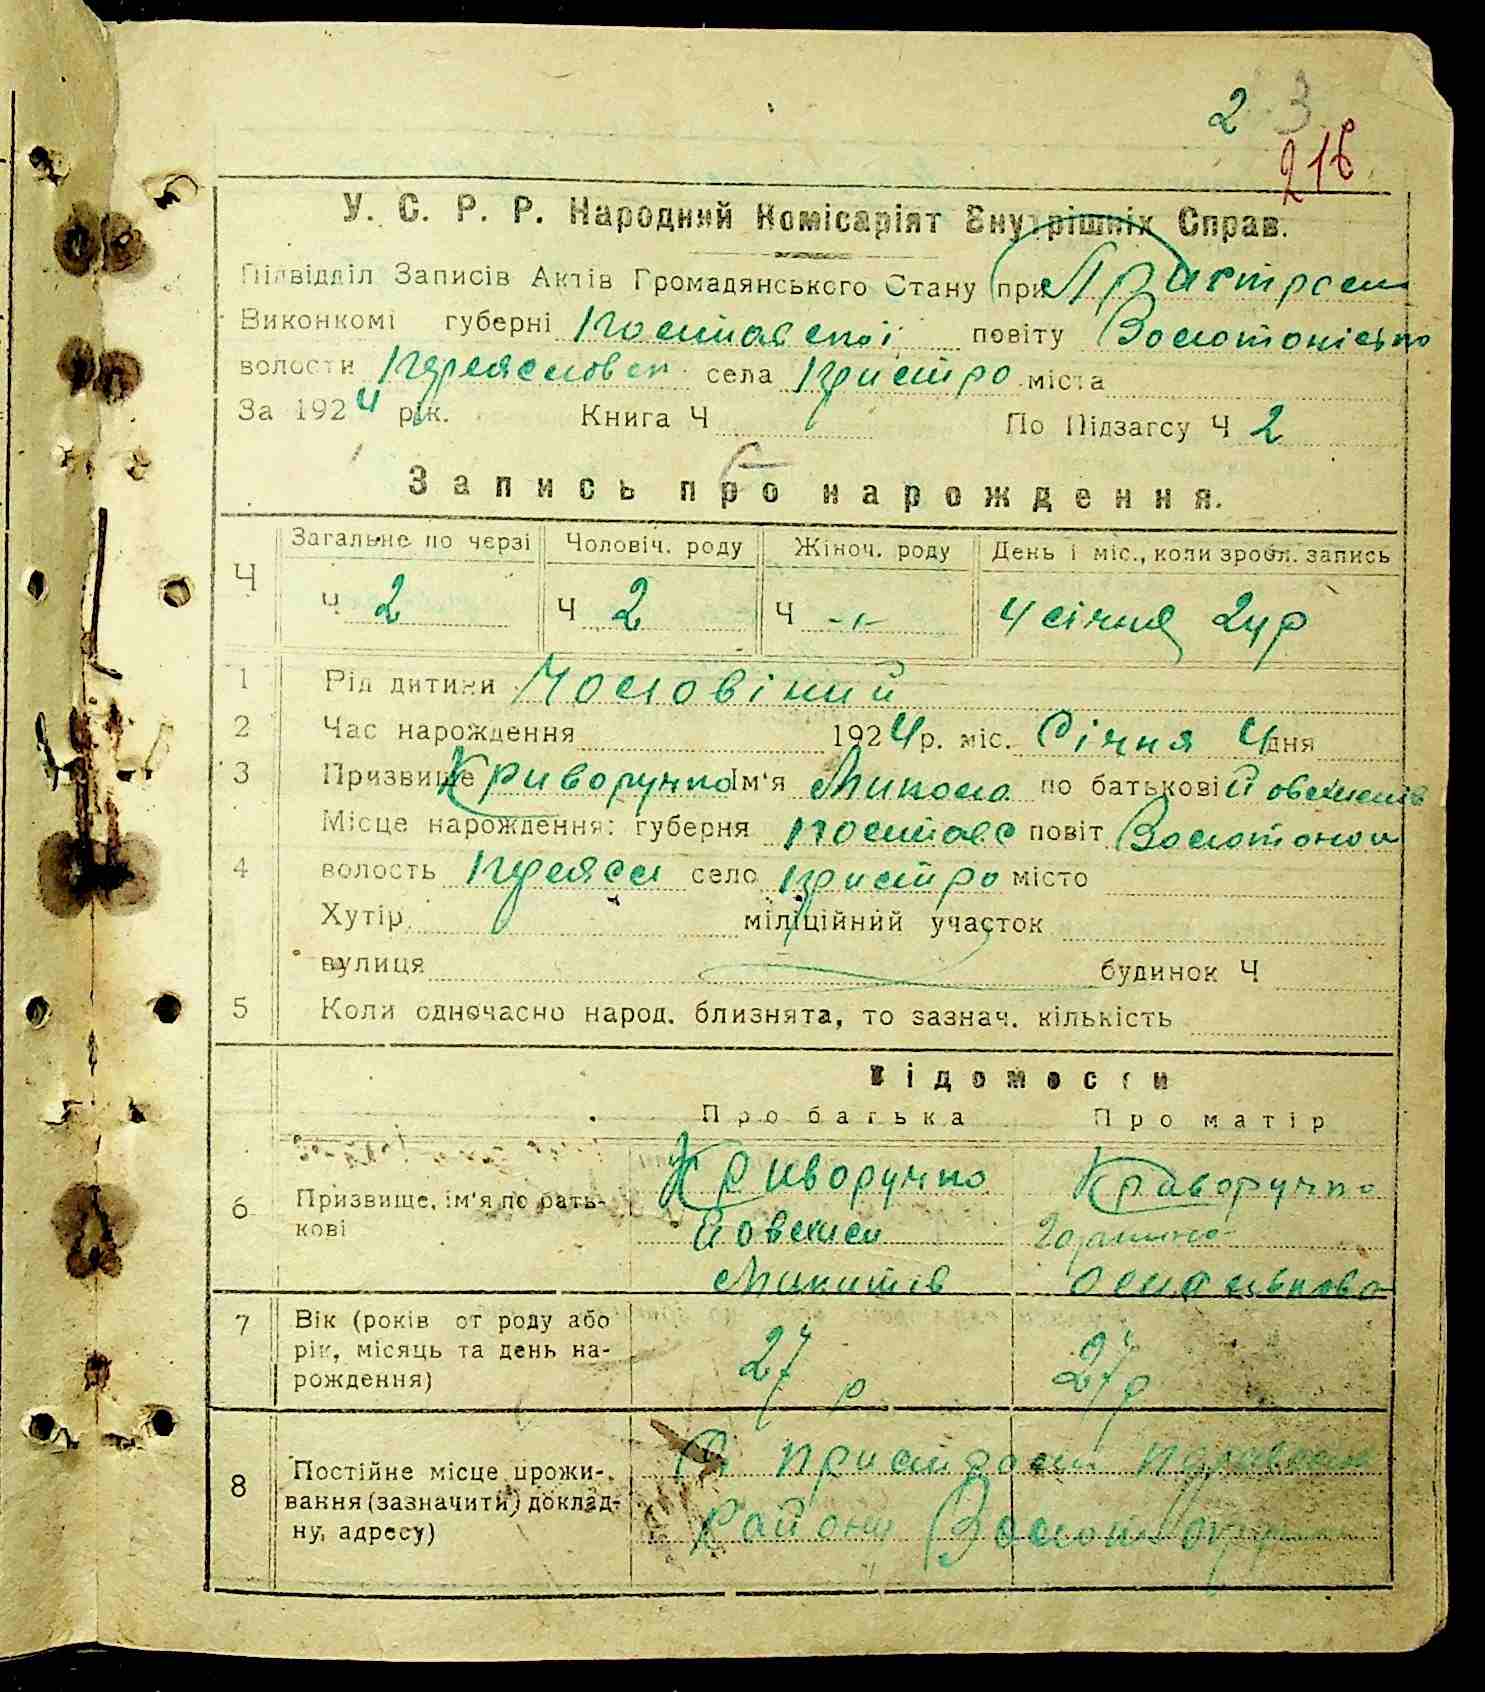 2 3
216
У. С. Р. Р. Народний Комісаріят Внутрішніх Справ.
Підвідділ Записів Актів Громадянського Стану при
Виконкомі губерні Полтавської повіту Золотонісько
волости Переяславськ села Пристро міста
За 1924 рік. Книга Ч По Підзагсу Ч 2
Запись про нарождення.
Загальне по черзі Чоловіч. роду Жіноч. роду День і міс., коли зробл. запись
Ч Ч 2 Ч 2 Ч -"- 4 січня 24 р
1 Рід дитини Чоловічий
2 Час нарождення 1924 р. міс. Січня 4 дня
3 Призвище Криворучко Ім'я Микола по батькові
Місце нарождення: губерня Полтавс повіт Золотонош
4 волость Переясл село Пристро місто
Хутір міліційний участок
вулиця будинок Ч
5 Коли одночасно народ. близнята, то зазнач. кількість
Відомости
Про батька Про матір
6 Призвище, ім'я по бать-кові Криворучко Криворучко
Микитів
7 Вік (років от роду або рік, місяць та день на-рождення) 27 р 27 р
8 Постійне місце прожи-вання (зазначити) доклад-ну, адресу)
району